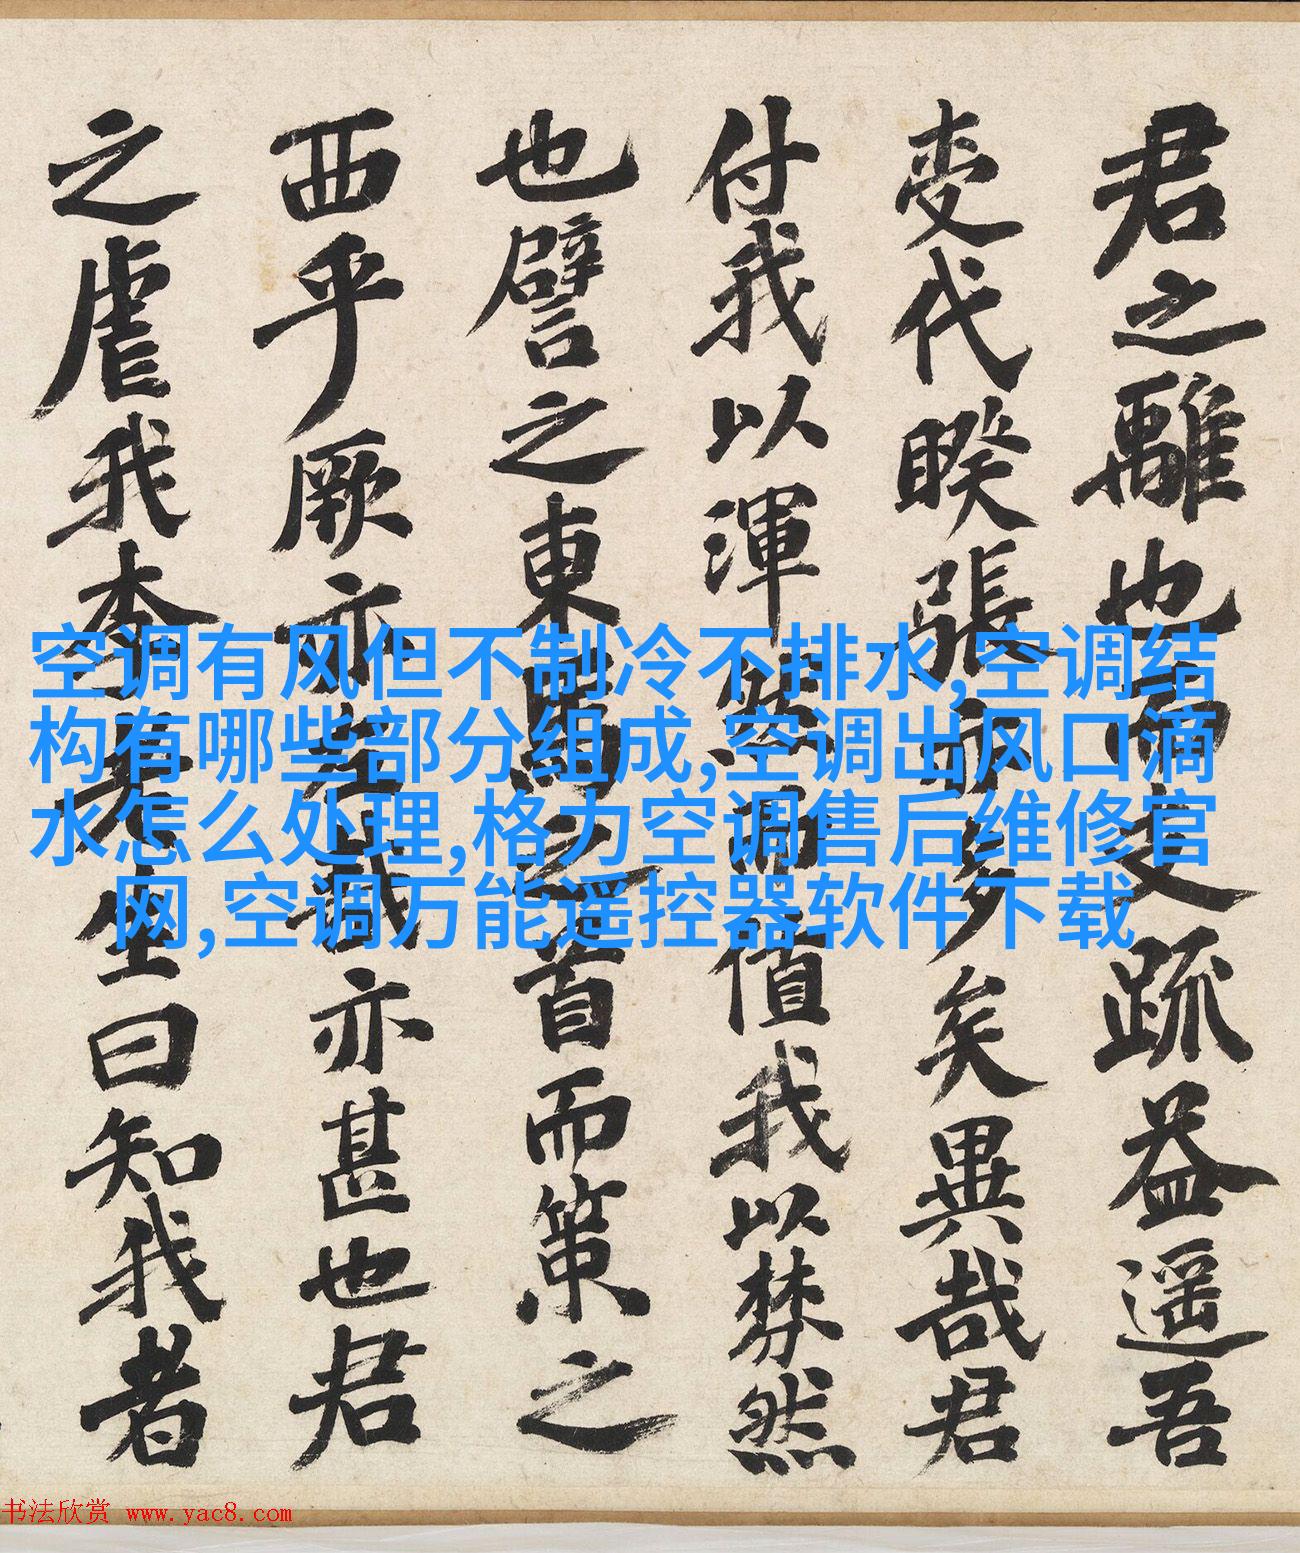 君之離也疏益遥吾
代暌張矣異哉君
付我以渾然而值我以棼然
也譬之東馬之首而策之
西乎厥亦亦甚也君
之虐我生曰知我者
空调有风但不制冷不排水,空调结
构有哪些部分组成,空调出风口滴
水怎么处理,格力空调售后维修官
网,空调万能遥控器软件下载
书法欣赏 www.yac8.com